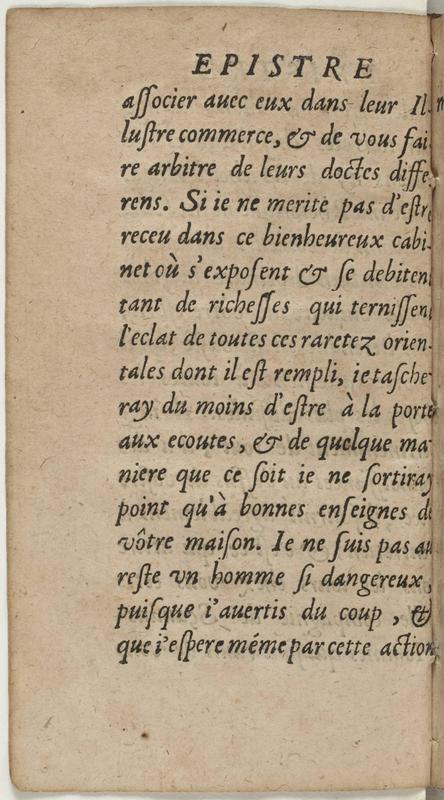 EPISTRE
aſſocier auec eux dans leur Il-
luſtre commerce, & de vous fai-
re arbitre de leurs doctes diffe-
rens. Si ie ne merite pas d'eſtre
receu dans ce bienheureux cabi-
net où s'expoſent & ſe debitent
tant de richeſſes qui terniſſent
l'eclat de toutes ces raretez orien-
tales dont il eſt rempli, ie taſche-
ray du moins d'eſtre à la porte
aux ecoutes, & de quelque ma-
niere que ce ſoit ie ne ſortiray
point qu'à bonnes enſeignes de
vôtre maiſon. Ie ne ſuis pas au
reſte vn homme ſi dangereux,
puiſque i'auertis du coup, &
que i'eſpere méme par cette action